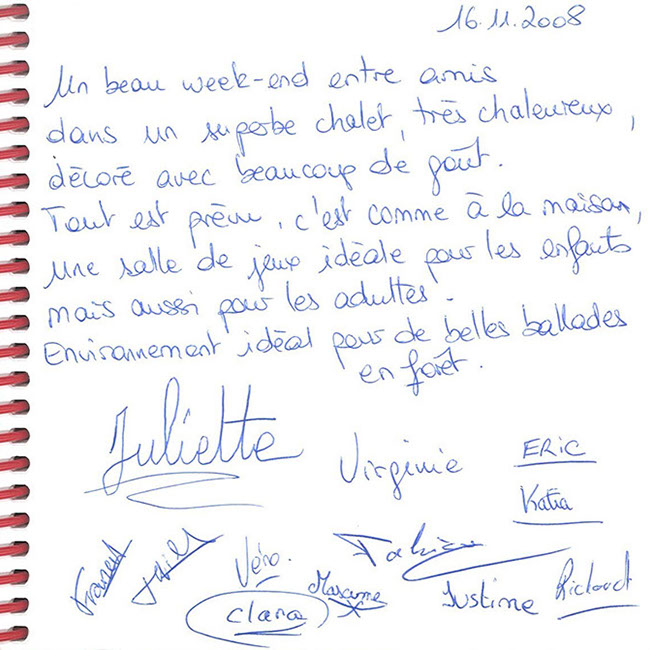 16.11.2008
Un beau week-end entre amis
dans un superbe chalet, très chaleureux,
décoré avec beaucoup de goût.
Tout est prévu, c'est comme à la maison,
une salle de jeux idéale pour les enfants
mais aussi pour les adultes.
Environnement idéal pour de belles ballades
en forêt.
Juliette
Virginie
ERIC
Katia
Véro.
Clara
Justine